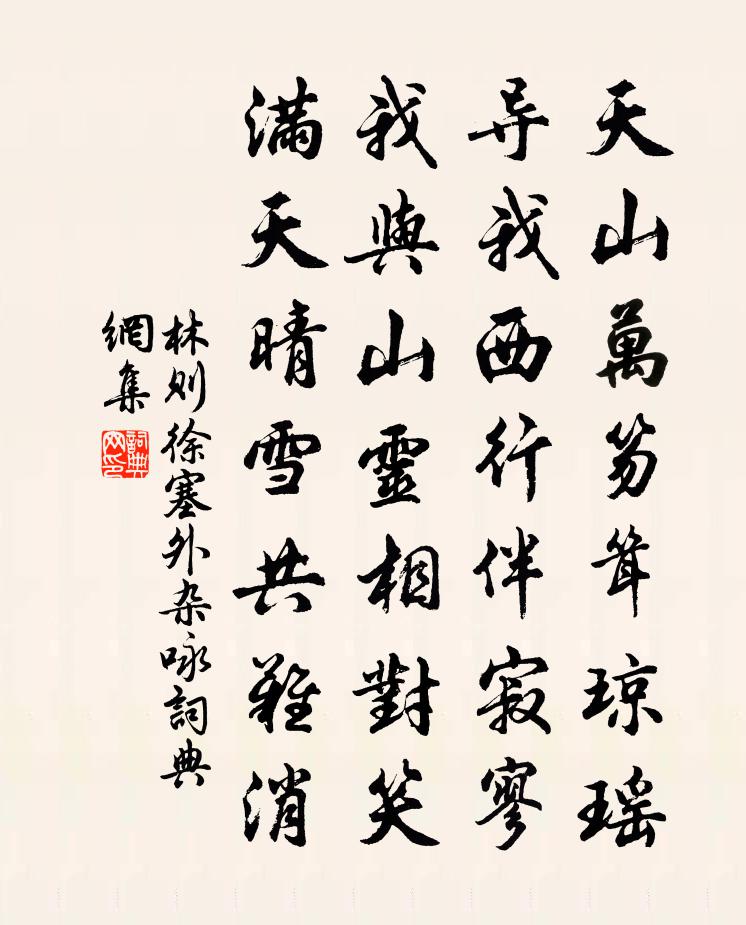 天山萬笏耸琼瑶
导我西行伴寂寥
我與山靈相對笑
满天晴雪共難消
林则徐塞外杂咏詞典
網集
詞典
网印